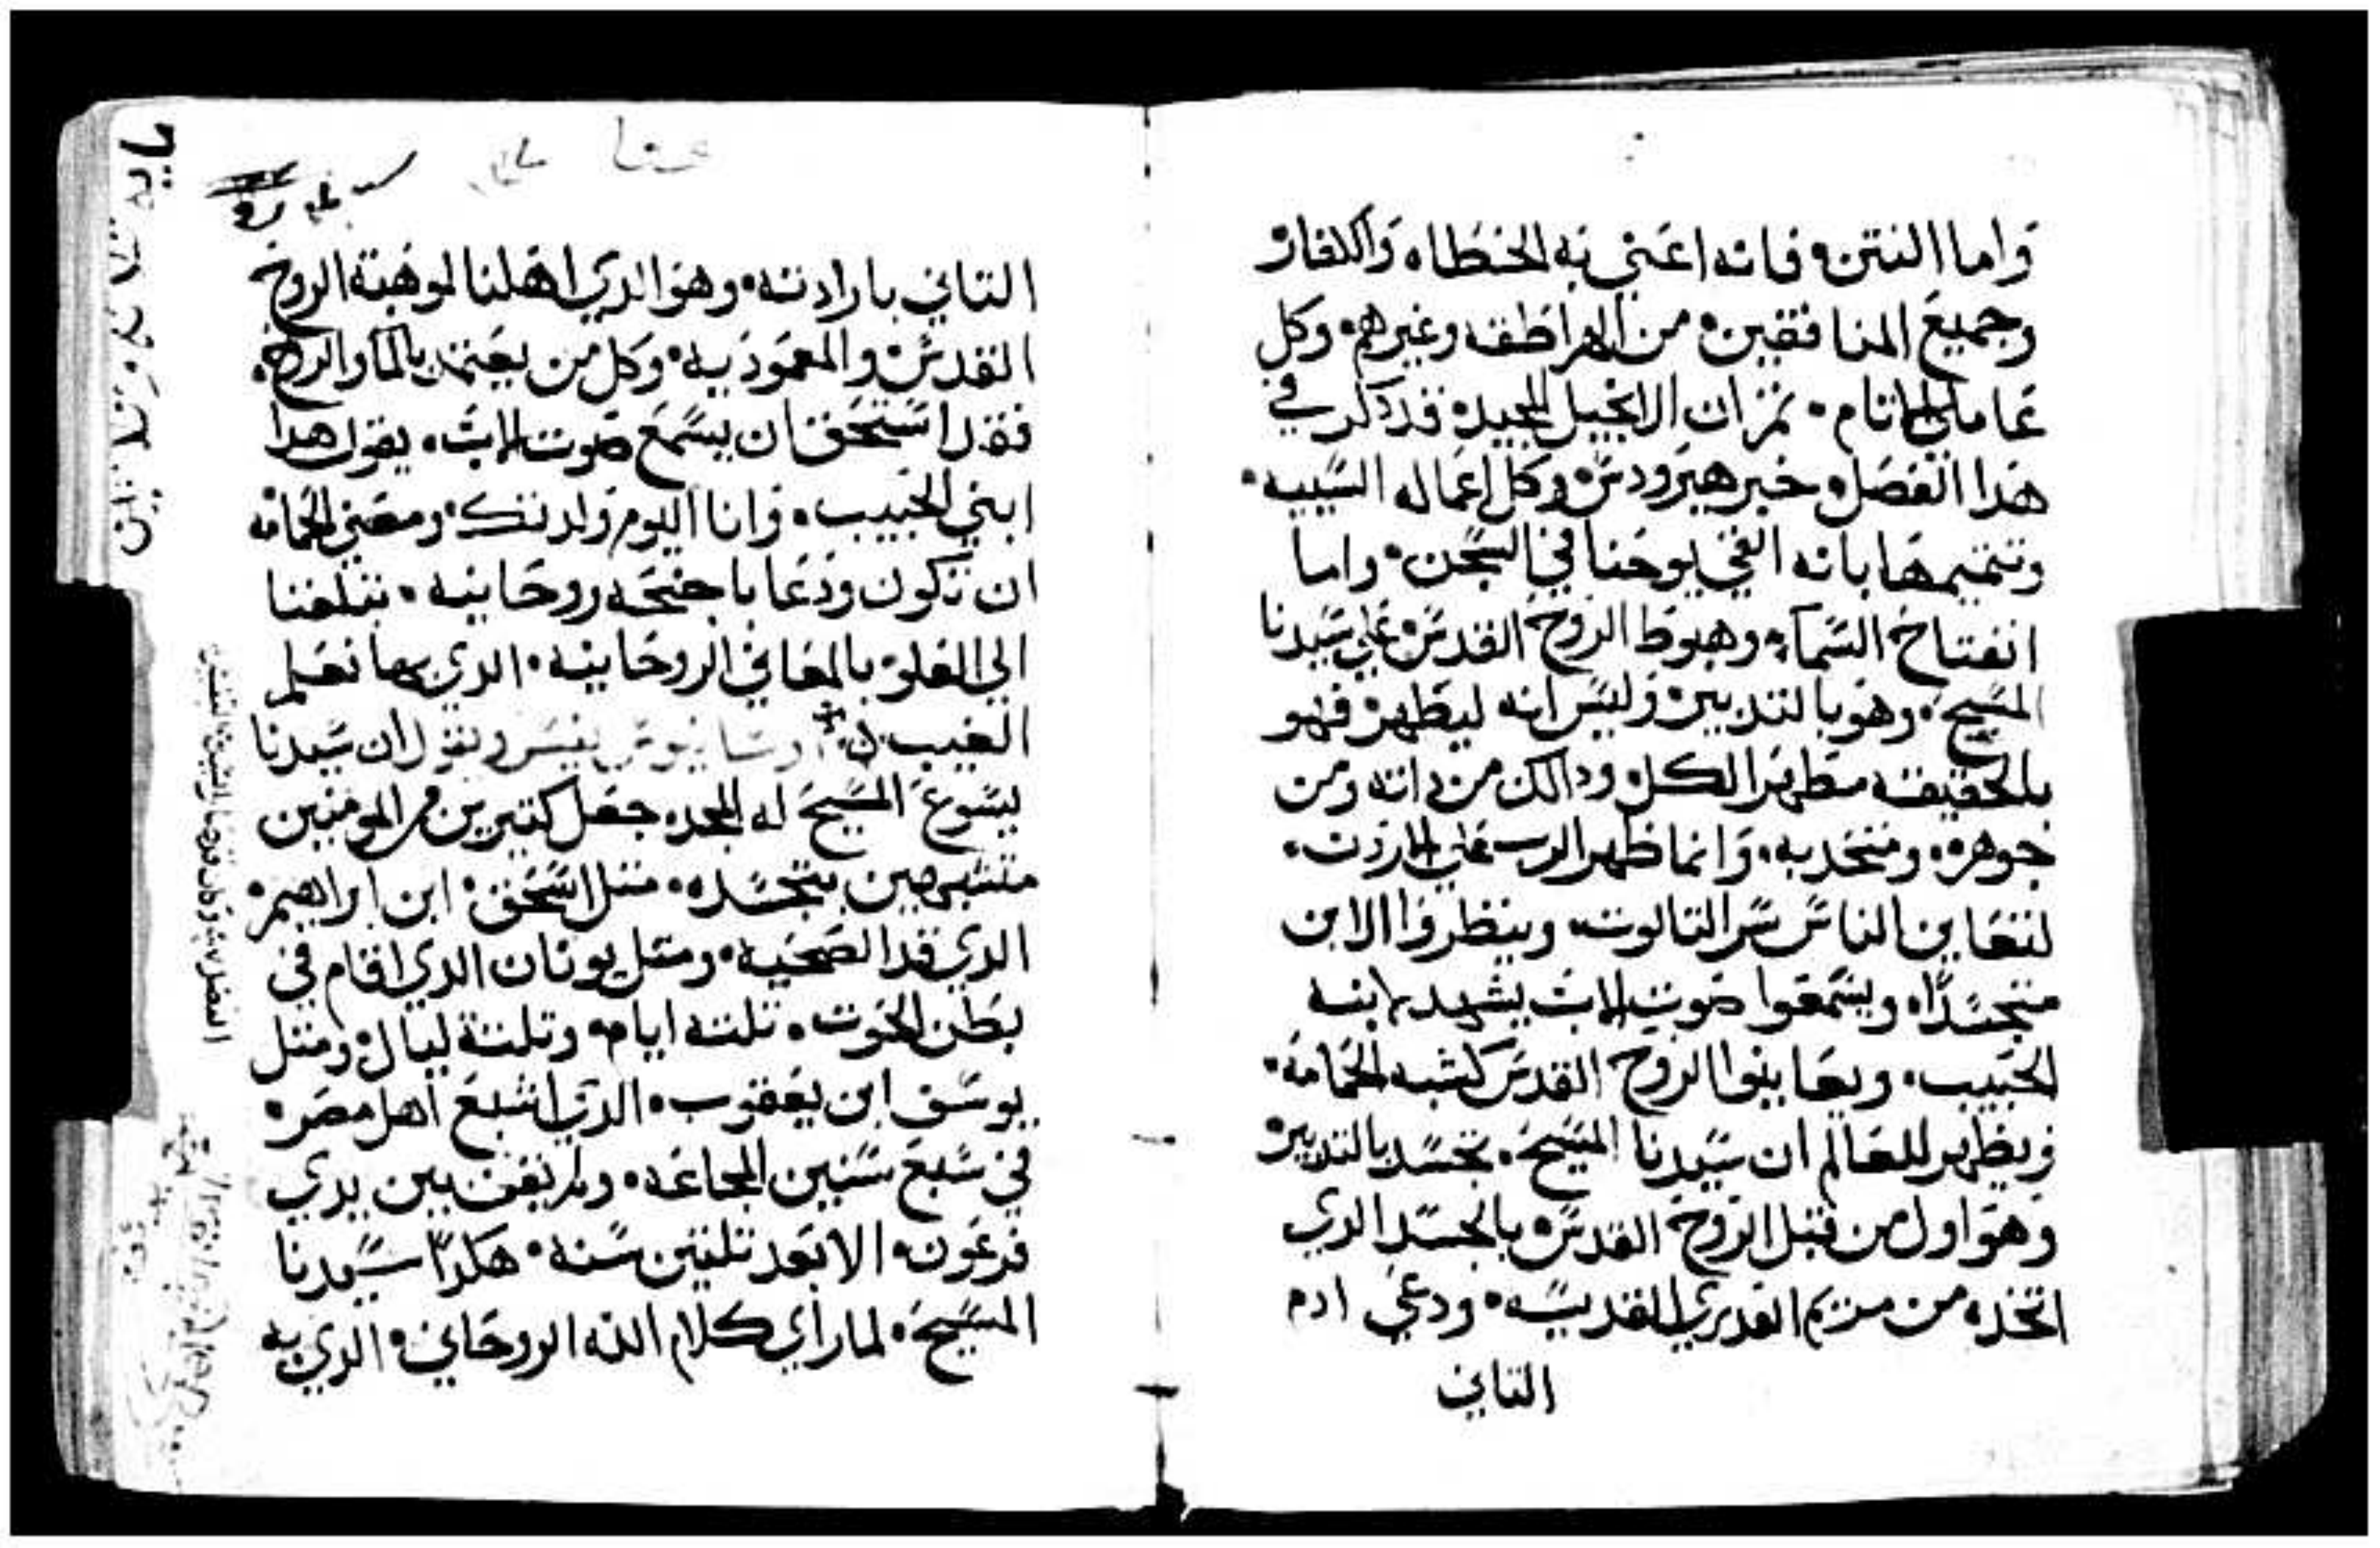 واما النتن فانه اعني به الخطاه والكفار
وجميع المنافقين من الهراطقه وغيرهم وكل
عاملي الاتام تم ان الانجيل المجيد قد ذكر في
هدا الفصل خبر هيرودس وكل اعماله السييه
وتتميمها بانه القي يوحنا في السجن واما
انفتاح السماء وهبوط الروح القدس علي سيدنا
المسيح وهو بالتدبير وليس انه ليطهر فهو
بالحقيقه مطهر الكل ودالك من داته ومن
جوهره ومتحد به وانما ظهر الرب علي الاردن
لتعاين الناس سر التالوت وينظروا الابن
متجسدا ويسمعوا صوت الاب يشهد لابنه
الحبيب ويعاينوا الروح القدس كشبه الحمامه
ويظهر للعالم ان سيدنا المسيح تجسد بالتدبير
وهو اول من قبل الروح القدس بالجسد الدي
اتخده من مريم العدري القديسه ودعي ادم
التاني
التاني بارادته وهو الدي اهلنا لموهبة الروح
القدس والمعموديه وكل من يعتمد بالما والروح
فقد استحق ان يسمع صوت الاب يقول هدا
ابني الحبيب وانا اليوم ولدتك ومعني الحمامه
ان تكون ودعا باجنحه روحانيه تبلغنا
الي العلو بالمعاني الروحانيه الدي بها نعلم
الغيب يفسر ويقول ان سيدنا
يسوع المسيح له المجد جعل كتيرين من المومنين
متشبهين بتجسده متل اسحق ابن ابراهيم
الدي قدا الضحيه ومتل يونان الدي اقام في
بطن الحوت تلته ايام وتلتة ليال ومتل
يوسف ابن يعقوب الدي اشبع اهل مصر
في سبع سنين المجاعه ولم يقف بين يدي
فرعون الا بعد تلتين سنه هكدا سيدنا
المسيح لما راي كلام الله الروحاني الدي به